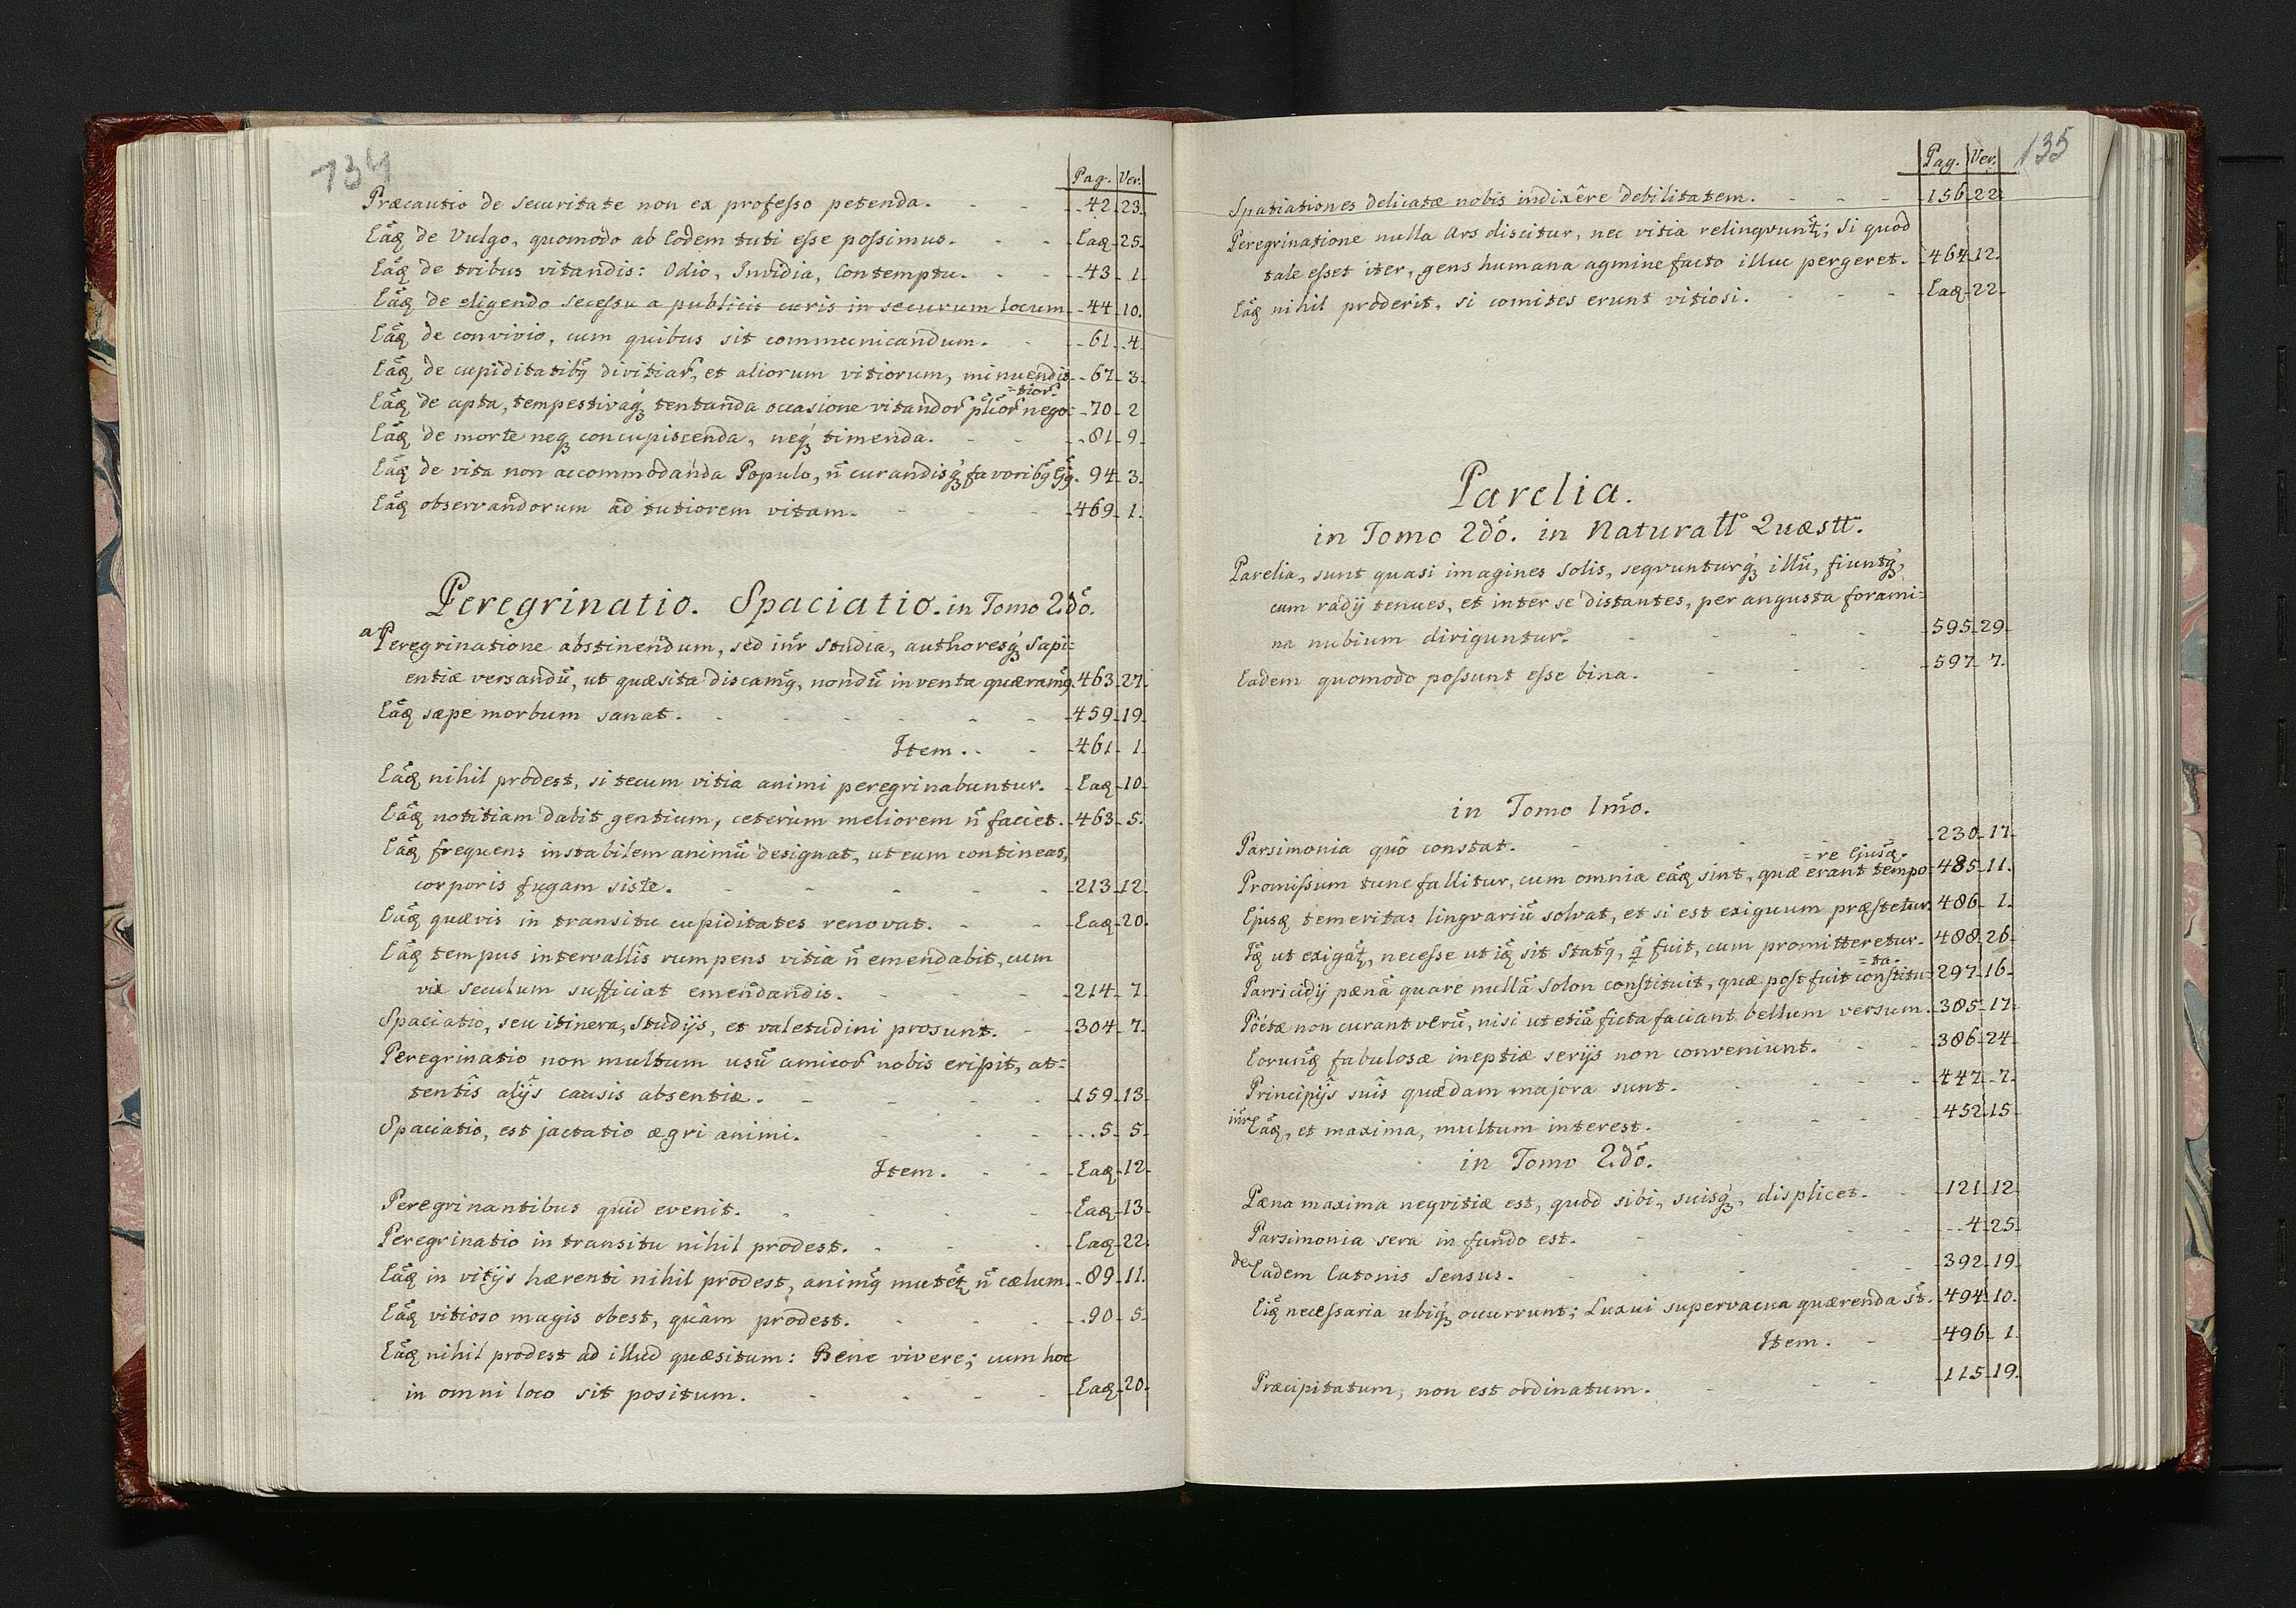 134
Pag. Ver.
Præcautio de securitate non ex professo petenda. 42. 23.
Eãq̃ de Vulgo, quomodo ab Eodem tuti esse possimus. Eaq̃ 25.
Eãq̃ de tribus vitandis: Odio, Invidia, Contemptu. 43. 1.
Eãq̃ de eligendo secessu a publicis curis in securum locum 44. 10.
Eãq̃ de convivio, cum quibus sit communicandum. 61. 4.
Eãq̃ de cupiditatibq̃ divitiar̃, et aliorum vitiorum, minuendis 67. 3.
=tior̃
Eãq̃ de apta, tempestivaq́ tentanda occasione vitandor̃ plior̃ nego= 70. 2
Eãq̃ de morte neq́ concupiscenda, neq́ timenda. 81. 9.
Eãq̃ de vita non accommodanda Populo, ñ curandisq́ favoribq̃ Ejq̃. 94. 3.
Eãq̃ observandorum ad tutiorem vitam. 469. 1.
Peregrinatio. Spaciatio. in Tomo 2dõ.
a Peregrinatione abstinendum, sed iñr studia, authoresq́ sapi=
entiæ versandũ, ut quæsita discamq̃, nondũ inventa quæramq̃. 463. 27.
Eãq̃ sæpe morbum sanat. 459. 19.
Item. 461. 1.
Eãq̃ nihil prodest, si tecum vitia animi peregrinabuntur. Eaq̃ 10.
Eãq̃ notitiam dabit gentium, ceterùm meliorem ñ faciet. 463. 5.
Eãq̃ frequens instabilem animũ designat, ut eum contineas,
corporis fugam siste. 213. 12.
Eãq̃ quævis in transitu cupiditates renovat. Eaq̃ 20.
Eãq̃ tempus intervallîs rumpens vitia ñ emendabit, cum
vix seculum sufficiat emendandis. 214. 7.
Spaciatio, seu itinera, studijs, et valetudini prosunt. 304. 7.
Peregrinatio non multum usũ amicor̃ nobis eripit, at=
tentîs alijs causis absentiæ. 159. 13.
Spaciatio, est jactatio ægri animi. 5. 5.
Item. Eaq̃ 12.
Peregrinantibus quid evenit. Eaq̃ 13.
Peregrinatio in transitu nihil prodest. Eaq̃ 22.
Eãq̃ in vitijs hærenti nihil prodest, animq̃ mutet̃ ñ cælum. 89. 11.
Eãq̃ vitioso magis obest, quàm prodest. 90. 5.
Eãq̃ nihil prodest ad illud quæsitum: Bene vivere; cum hoc
in omni loco sit positum. Eaq̃ 20.
135
Pag. Ver.
Spatiationes delicatæ nobis indixêre debilitatem. 156. 22.
Peregrinatione nulla Ars discitur, nec vitia relinqvunt̃; Si quod
tale esset iter, gens humana agmine facto illuc pergeret. 464. 12.
Eãq̃ nihil proderit, si comites erunt vitiosi. Eaq̃ 22.
Parelia.
in Tomo 2dõ. in Naturall: Quæstt:
Parelia, sunt quasi imagines Solis, seqvunturq́ illũ, fiuntq́,
cum radij tenues, et inter se distantes, per angusta forami=
na nubium diriguntur. 595. 29.
Eadem quomodo possunt esse bina. 597. 7.
in Tomo 1mõ.
Parsimonia quô constat. 230. 17.
=re Ejusq̃.
Promissum tunc fallitur, cum omnia eãq̃ sint, quæ erant tempo= 485. 11.
Ejusq̃ temeritas lingvariũ solvat, et si est exiguum præstetur. 486. 1.
Iq̃ ut exigat̃, necesse ut iq̃ sit statq̃, q̃ fuit, cum promitteretur. 488. 26.
=ta.
Parricidij pænã quare nullã Solon constituit, quæ post fuit constitu= 297. 16.
Poëtæ non curant verũ, nisi ut etiã ficta faciant bellum versum. 385. 17.
Eorumq̃ fabulosæ ineptiæ serijs non conveniunt. 386. 24.
Principijs suis quædam majora sunt. 447. 7.
iñr Eãq̃, et maxima, multum interest. 452. 15.
in Tomo 2dõ.
Pæna maxima neqvitiæ est, quod sibi, suisq́, displicet. 121. 12.
Parsimonia sera in fundo est. 4. 25.
de Eadem Catonis Sensus. 392. 19.
Eiq̃ necessaria ubiq́ occurrunt; Luxui supervacua quærenda st̃. 494. 10.
Item. 496. 1.
Præcipitatum, non est ordinatum. 115. 19.